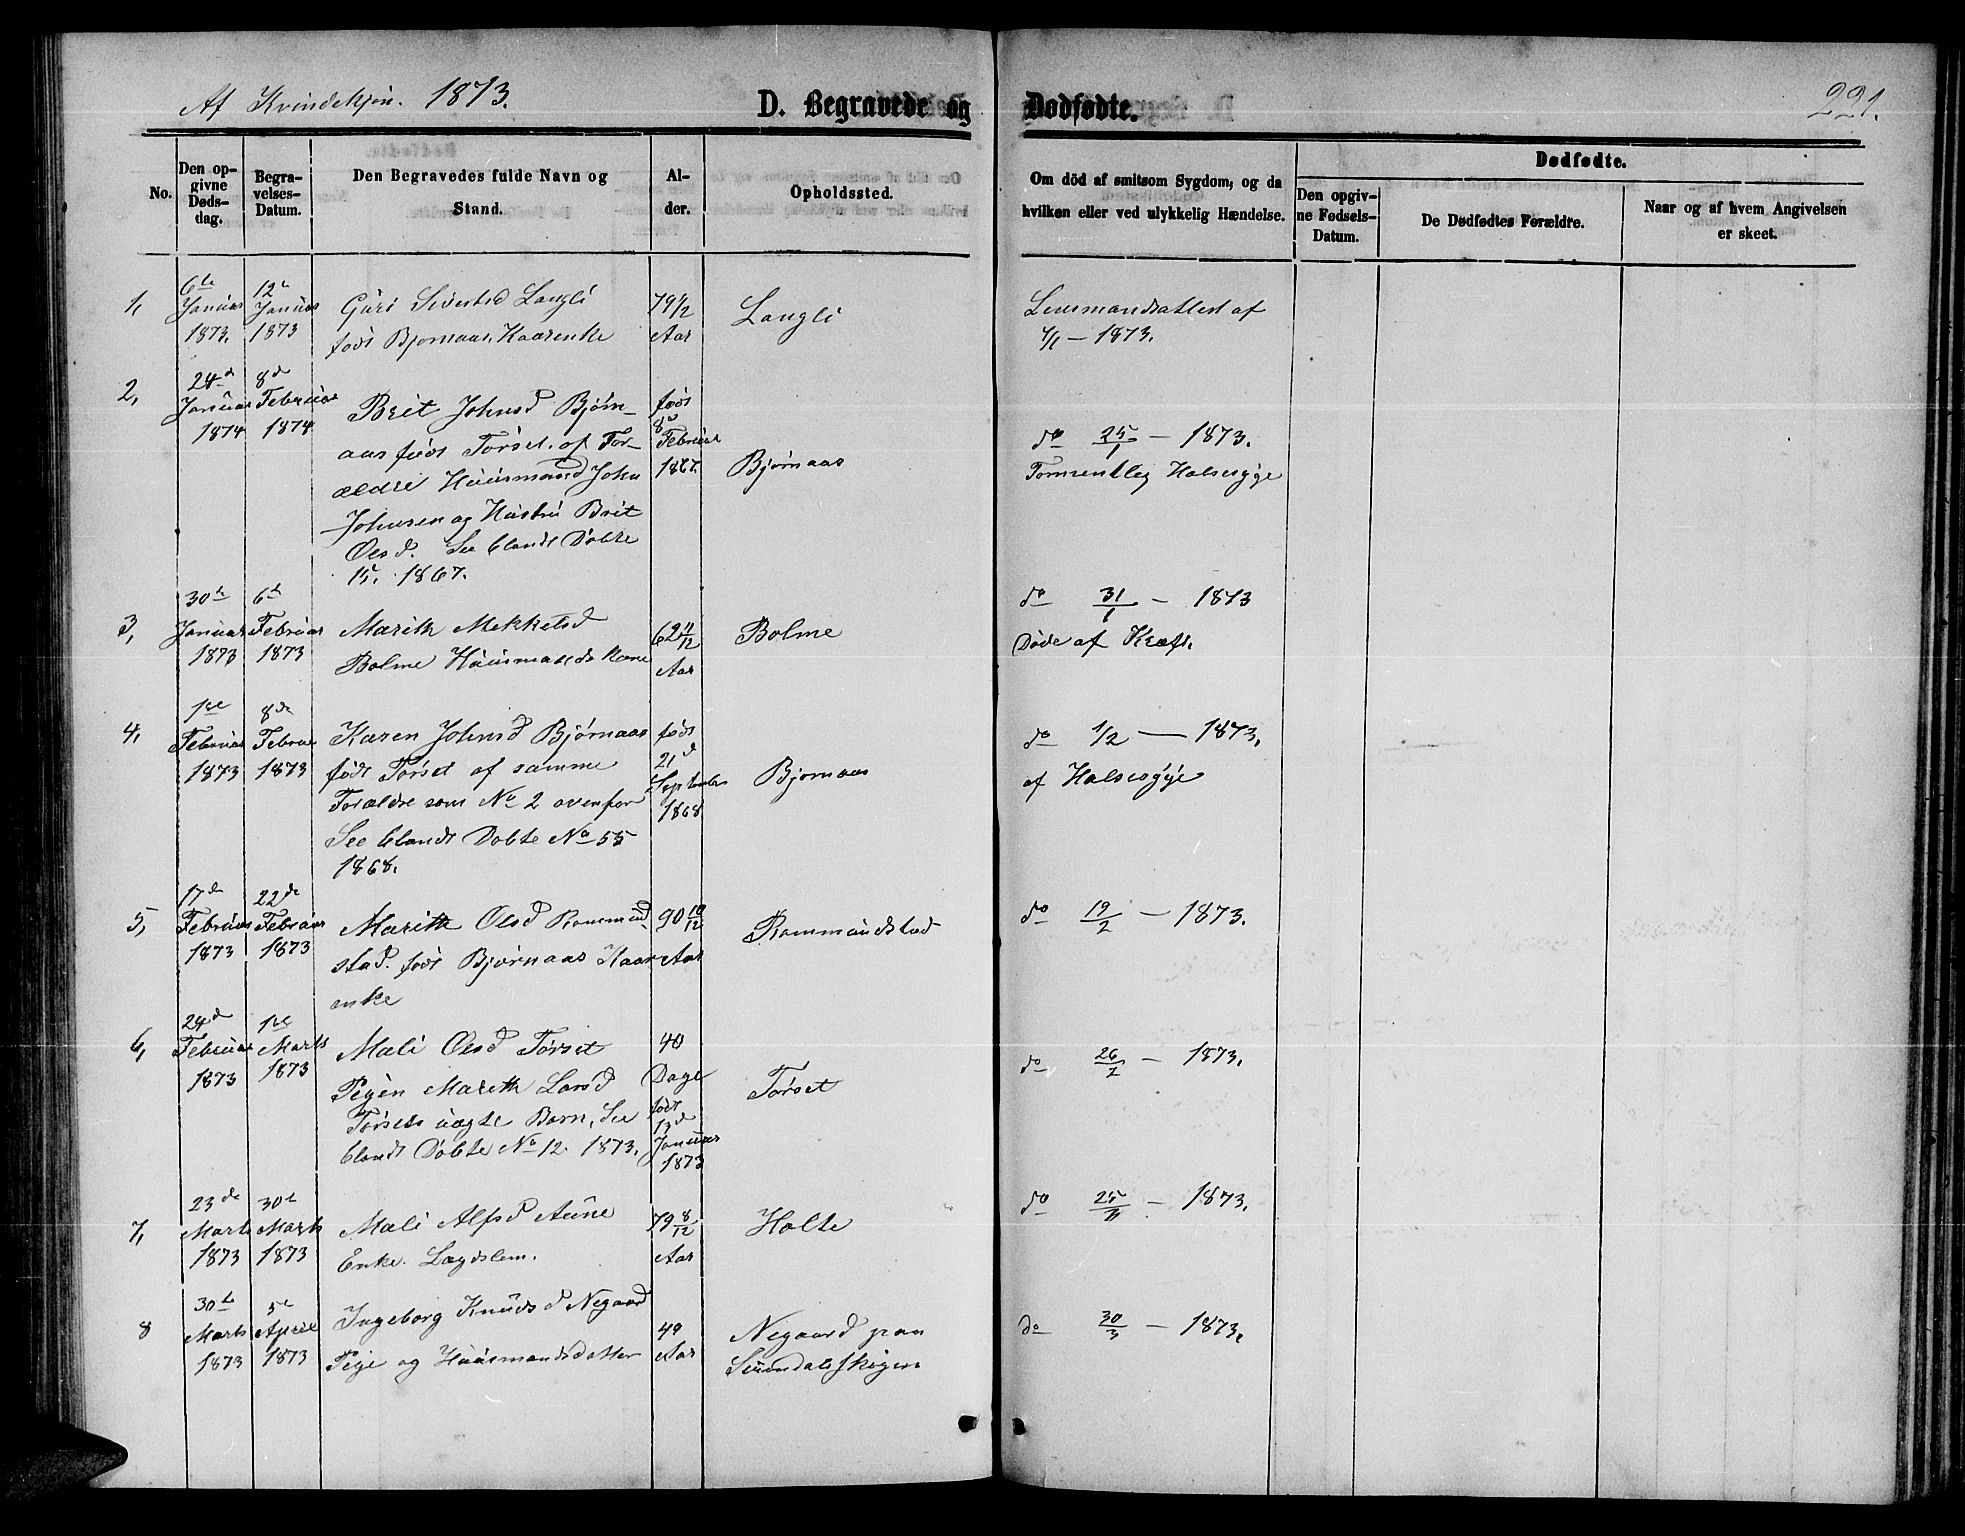 Af Kvindekjøn. 1873.
D. Begravede og Dødfødte.
221.
No.
Den opgivne Dødsdag.
Begravelses-Datum.
Den Begravedes fulde Navn og Stand.
Alder.
Opholdssted.
Om död af smitsom Sygdom, og da hvilken eller ved ulykkelig Hændelse.
Dødfødte.
Den opgivne Fødsels-Datum.
De Dødfødtes Forældre.
Naar og af hvem Angivelsen er skeet.
1,
6te Januar 1873.
12te Januar 1873
Guri Sivertsd Langli
født Bjørnaas, Kaarenke
79 1/2 Aar
Langli
Lensmandsattest af
1873.
2,
24de Januar 1874
8de Februar 1874
Brit Johnsd Bjørn-
aas født Tørset. af For-
ældre Huusmand John
Johnsen og Hustru Brit
Olsd. See blandt Døbte
15, 1867.
født 8de Februar 1867.
Bjørnaas
do 25/1 - 1873.
Halssyge
3,
30te Januar 1873
6te Februar 1873
Marith Mekkelsd
Bolme Huusmands Kone
62 11/12 Aar
Bolme
do 31/1 - 1873
Døde af Kræft.
4,
1ste Februar 1873
8de Februar 1873
Karen Johnsd Bjørnaas
født Tørset af samme
Forældre som No 2 ovenfor
See blandt Døbte No 55
1868.
født 21de September 1868
Bjørnaas
do 1/2 - 1873.
af Halssyge
5,
17de Februar 1873
22de Februar 1873
Marith Olsd Rommund-
stad. født Bjørnaas Kaar-
enke
90 10/12 Aar
Rommundstad
do 19/2 - 1873.
6,
24de Februar 1873
1ste Marts 1873
Mali Olsd Tørset
Pigen Marith Larsd
Tørsets uægte Barn, See
blandt Døbte No 12. 1873.
40 Dage født 13de Januar 1873
Tørset
do 26/2 - 1873.
7,
23de Marts 1873
30te Marts 1873
Mali Alfsd Aune
Enke. Lægdslem.
79 8/12 Aar
Holte
do 25/3 - 1873.
8
30te Marts 1873
5te April 1873
Ingeborg Knudsd Negaard
Pige og Huusmandsdatter
49 Aar
Negaard paa
Surendalsskogen
do 30/3 - 1873.